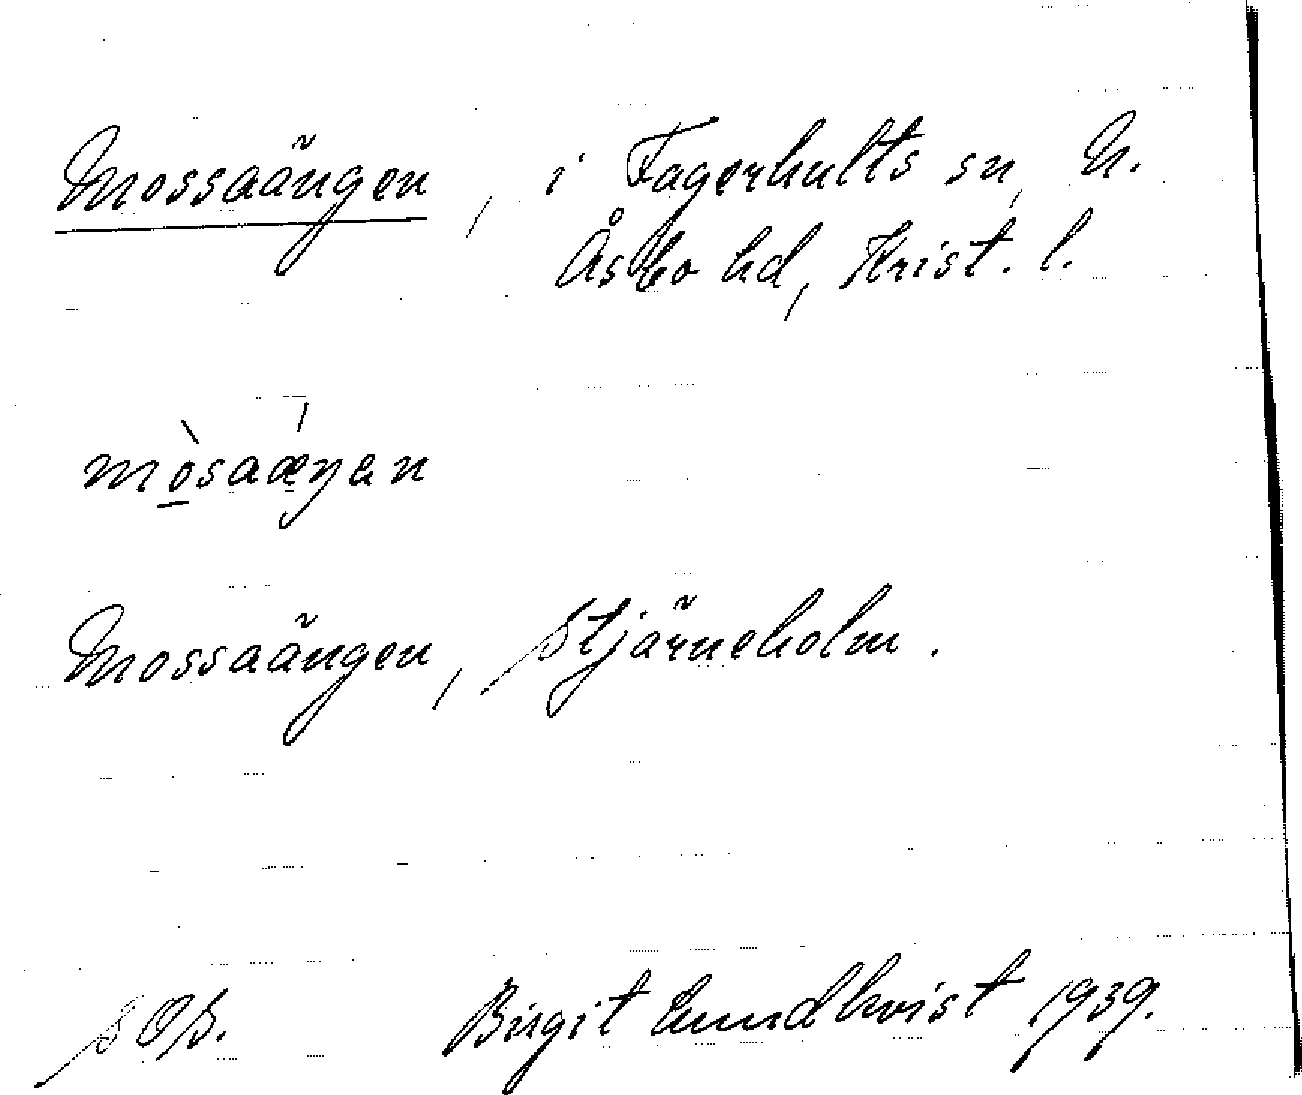 Mossaängen, i Fagerhults sn, N.
Åsbo hd, Krist. l.
mòsaæŋan
Mossaängen, Stjärneholm.
SOS. Birgit Lundkvist 1939.